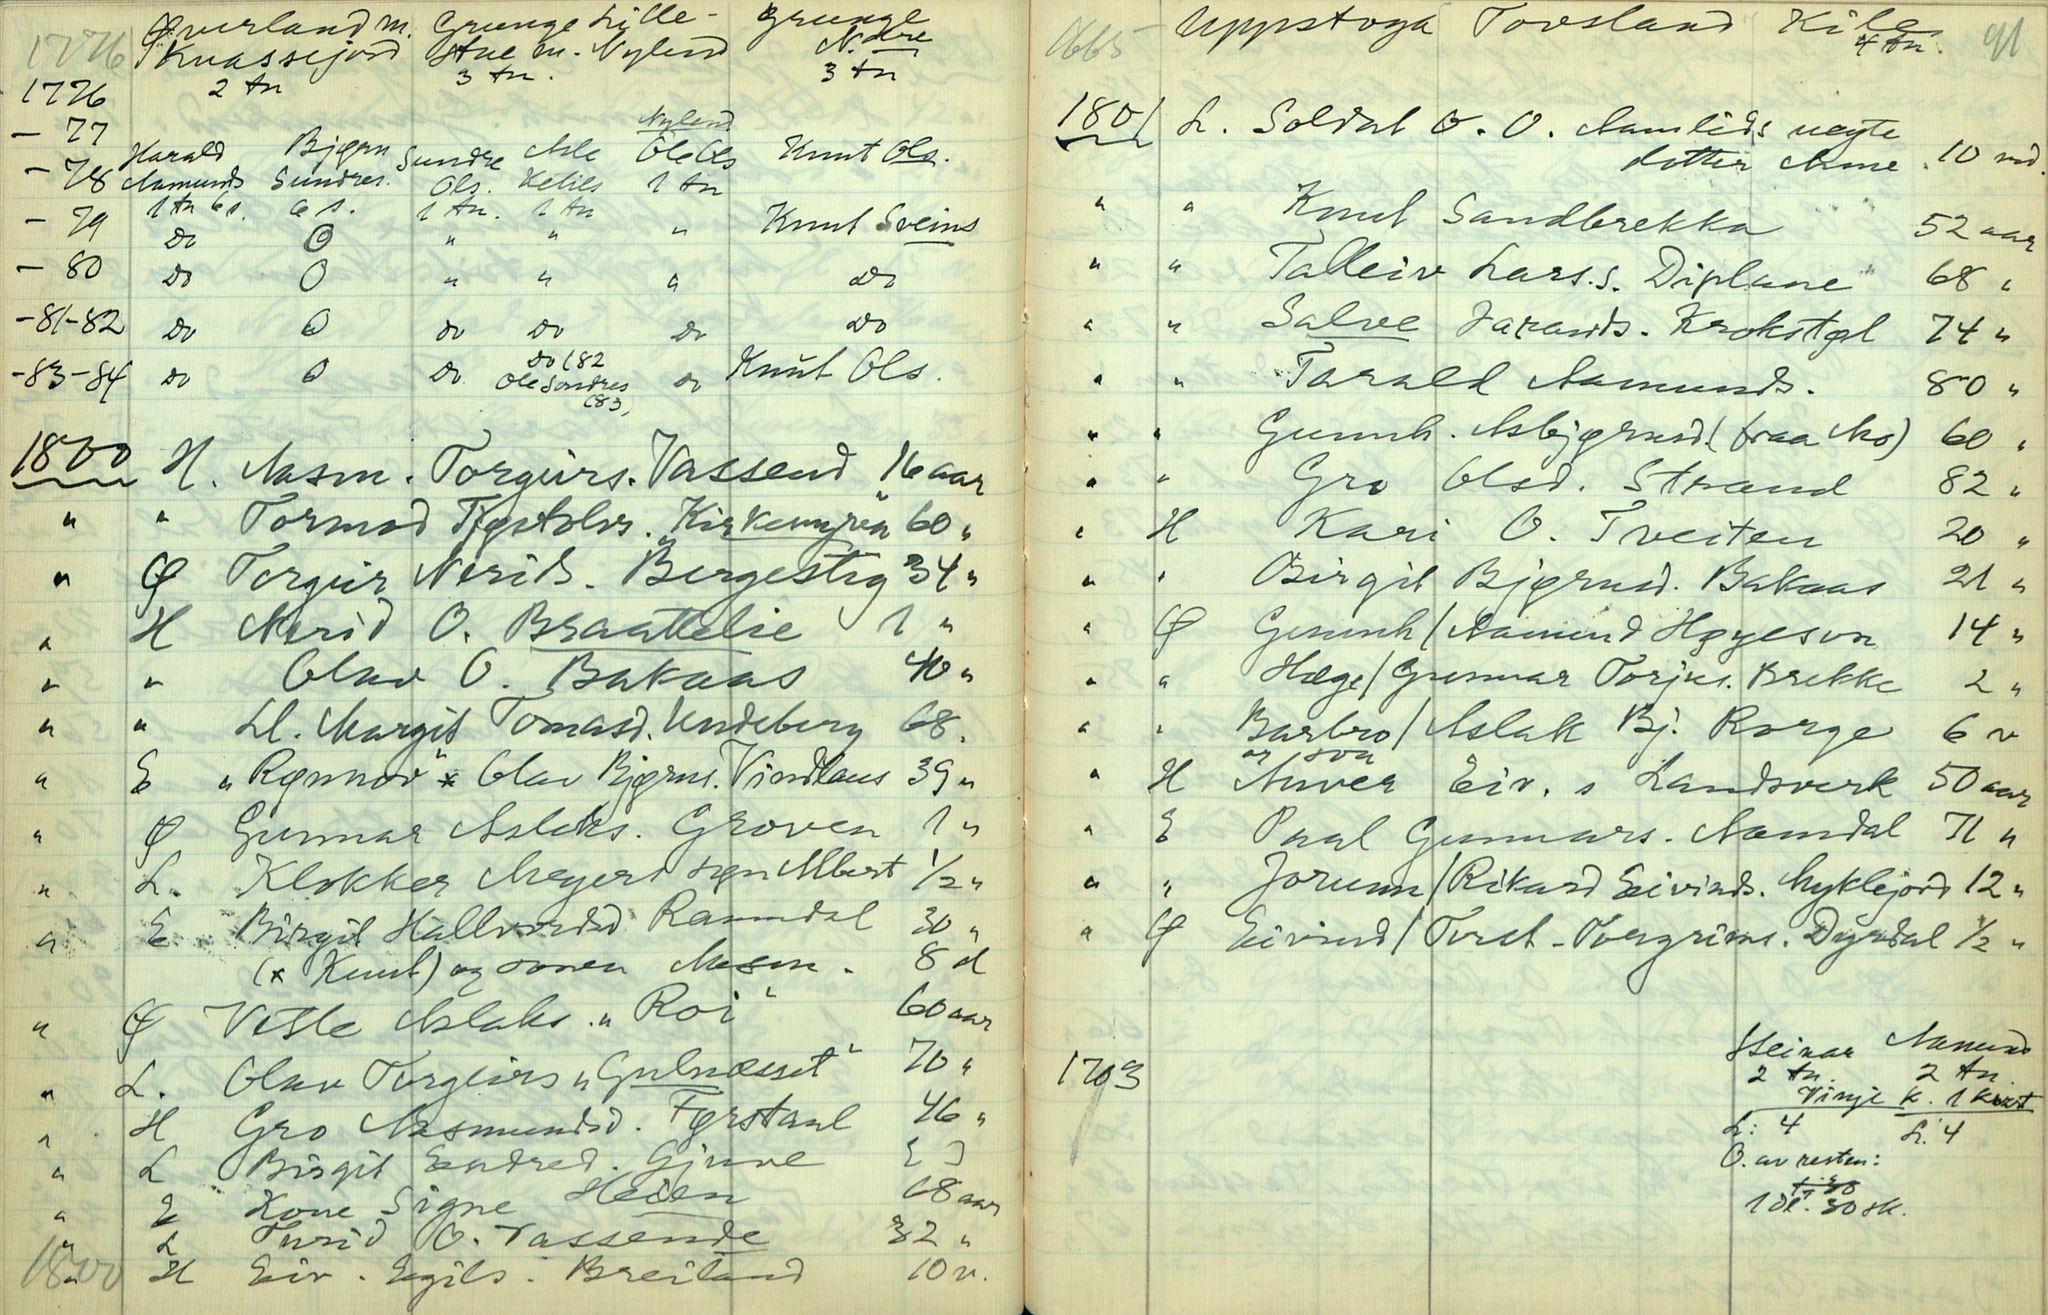 1776 Øverland m. Grunge Lille- Grunge
Kvassejord Stue m. Nylend N.dre
2 tn 3 tn. 3 tn
1776
- 77 Nylend
Harald Bjørn Sundre Asle Ole Ols Knut Ols.
- 78 Aamunds Sundres. Ols. Ketils 1 tn
1 tn 6 s. 6 s. 1 tn. 1 tn
- 79 do O " " " Knut Sveins
- 80 do O " " " do
- 81-82 do O do do do do
- 83-84 do O do do (82 do Knut Ols.
Ole Sondres
(83)
1800 H. Aasm. Torgeirs. Vassend 16 aar
" " Tormod Kjøstolvs. "Kirkemyren" 60 "
" Ø Torgeir Nerids. Bergestig 34 "
" H Nerid O. Braattelie 1 "
" " Olav O. Bakaas 40 "
" " Ll. Margit Tomasd. Undeberg 68.
" E "Rønnov" * Olav Bjørns. Vindlaus 39 "
" Ø Gunnar Aslaks. Groven 1 "
" L. Klokker Meyers søn Albert 1/2 "
" E Birgit Hallvordsd Ramndal 30 "
(* Knut) og sonen Aasm. 8 d
" Ø Vetle Aslaks. "Roi" 60 aar
" L. Olav Torgeirs "Gulnesset" 70 "
" H Gro Aasmundsd. Førstaul 46 "
" L Birgit Endred. Gjuve [ ]
" E Kone Signe Heien 68 aar
" L Turid O. Vassende 32 "
1800 " H Eiv. Egils. Breiland 10 v.
1665 Uppstoga Torsland Kile 91
4 tn.
1801 L. Soldat O. O. Aamlids uegte
dotter Anne. 10 md.
" " Knut Sandbrekka 52 aar
" " Talleiv Lars.s. Diplane 68 "
" " Salve Jarands. Krokstøl 74 "
" " Tarald Aamunds. 80 "
" " Gunnh. Asbjørnsd. (fraa Mo) 60 "
" " Gro Olsd. Strand 82 "
" H Kari O. Tveiten 20 "
" " Birgit Bjørnsd. Bakaas 21 "
" Ø Gunnh / Aamund Høyeson 14 "
" " Hæge / Gunnar Torjus. Brekke 2 "
" " Barbro / Aslak Bj. Rorge 6 v
" H Anver Eiv. s Landsverk 50 aar
" E Paal Gunnars. Aamdal 71 "
" " Jorunn / Rikard Eivinds. Myklejord 12 "
" Ø Eivind / Torst. Torgrims. Dyrdal 1/2 "
1703 Steinar Aamund
2 tn. 2 tn.
Vinje k. 1 kort
L: 4 L. 4
O. av resten:
1 dl. 30 sk.